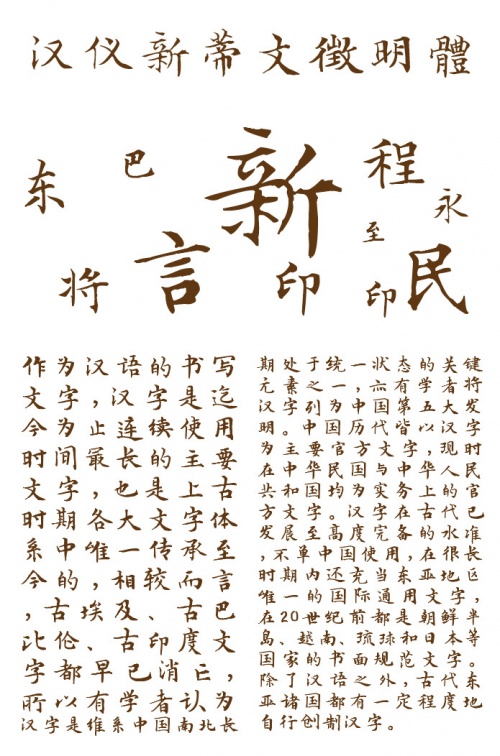 汉仪新蒂文徵明體
东
巴
新
程
永
至
将
言
印
印
民
作为汉语的书写
文字,汉字是迄
今为止连续使用
时间最长的主要
文字,也是上古
时期各大文字体
系中唯一传承至
今的,相较而言
,古埃及、古巴
比伦、古印度文
字都早已消亡,
所以有学者认为
汉字是维系中国南北长
期处于统一,状态的关键
元素之一,六有学者将
汉字列为中国第五大发
明。中国历代皆以汉字
为主要官方文字,现时
在中华民国与中华人民
共和国均为实务上的官
方文字。汉字在古代已
发展至高度完备的水准
,不单中国使用,在很长
时期内还充当东亚地区
唯一的国际通用文字,
在20世纪前都是朝鲜半
島、越南、琉球和日本等
国家的书面规范文字。
除了汉语之外,古代东
亚诸国都有一定程度地
自行创制汉字。